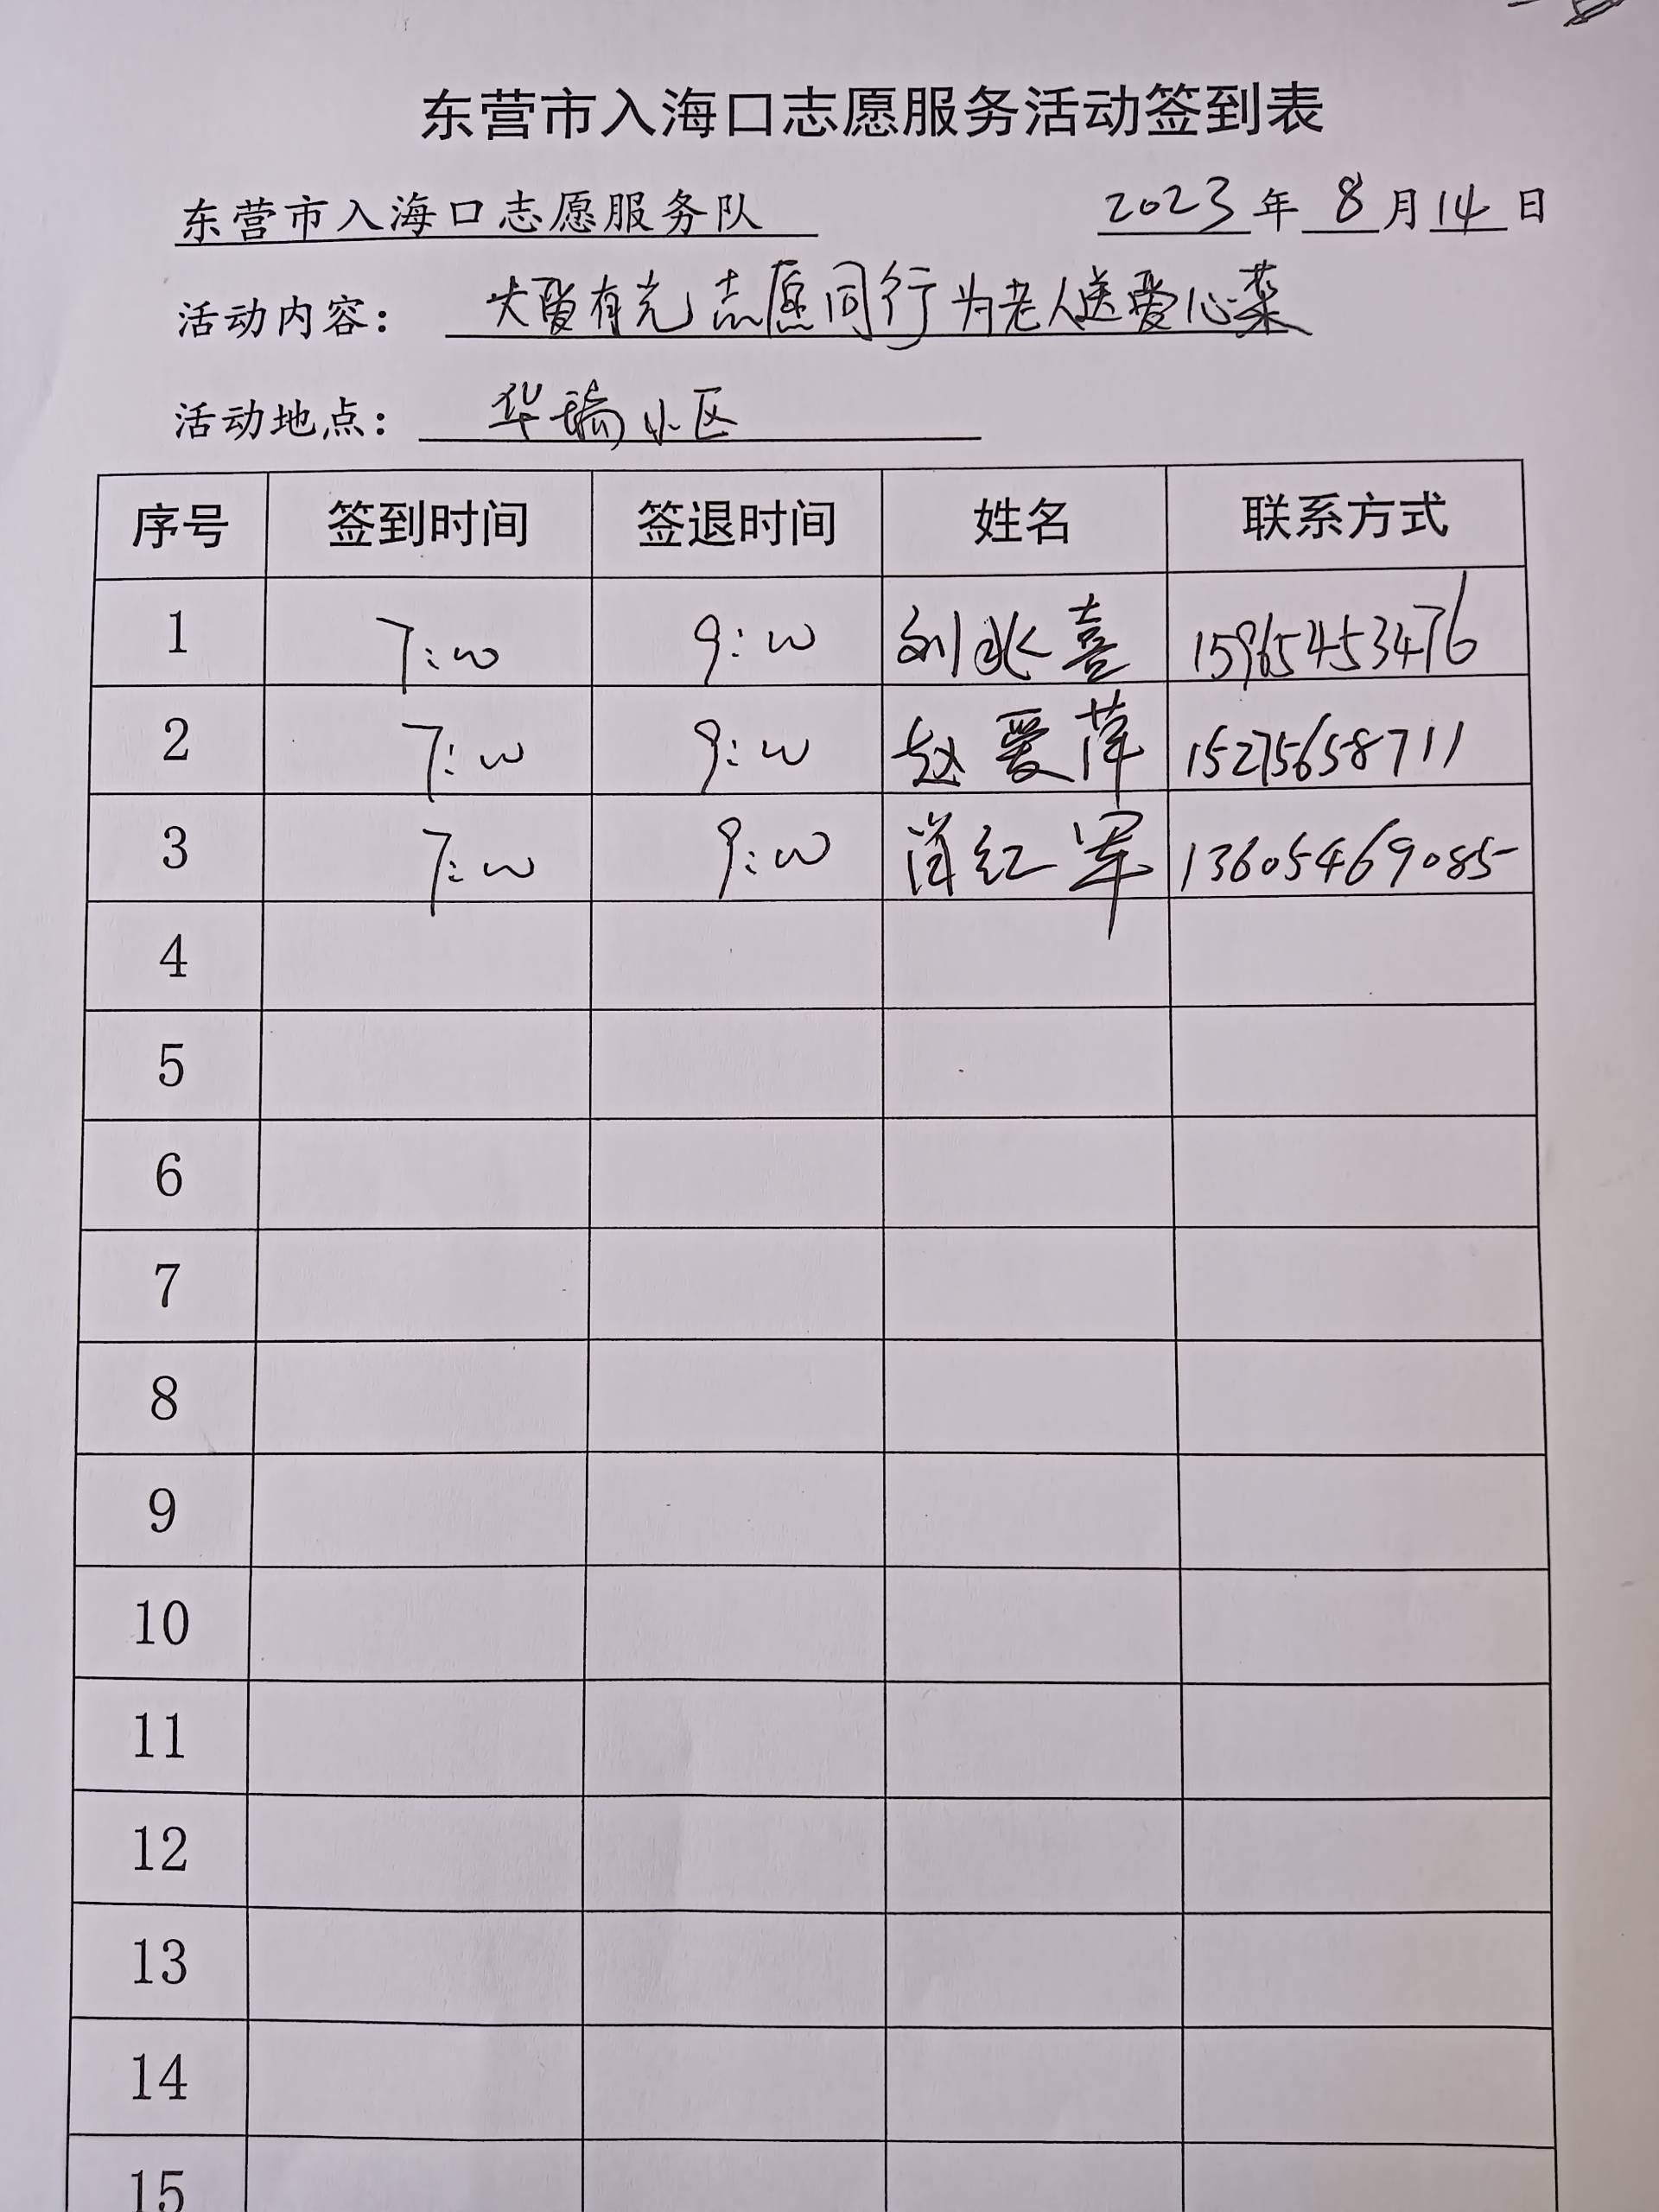 东营市入海口志愿服务活动签到表
东营市入海口志愿服务队 2023年8月14日
活动内容: 大爱有光志愿同行为老人送爱心菜
活动地点: 华瑞小区
序号 签到时间 签退时间 姓名 联系方式
1 7:00 9:00 刘兆喜 15965453476
2 7:00 9:00 赵爱萍 15275658711
3 7:00 9:00 肖红军 13605469085
4
5
6
7
8
9
10
11
12
13
14
15